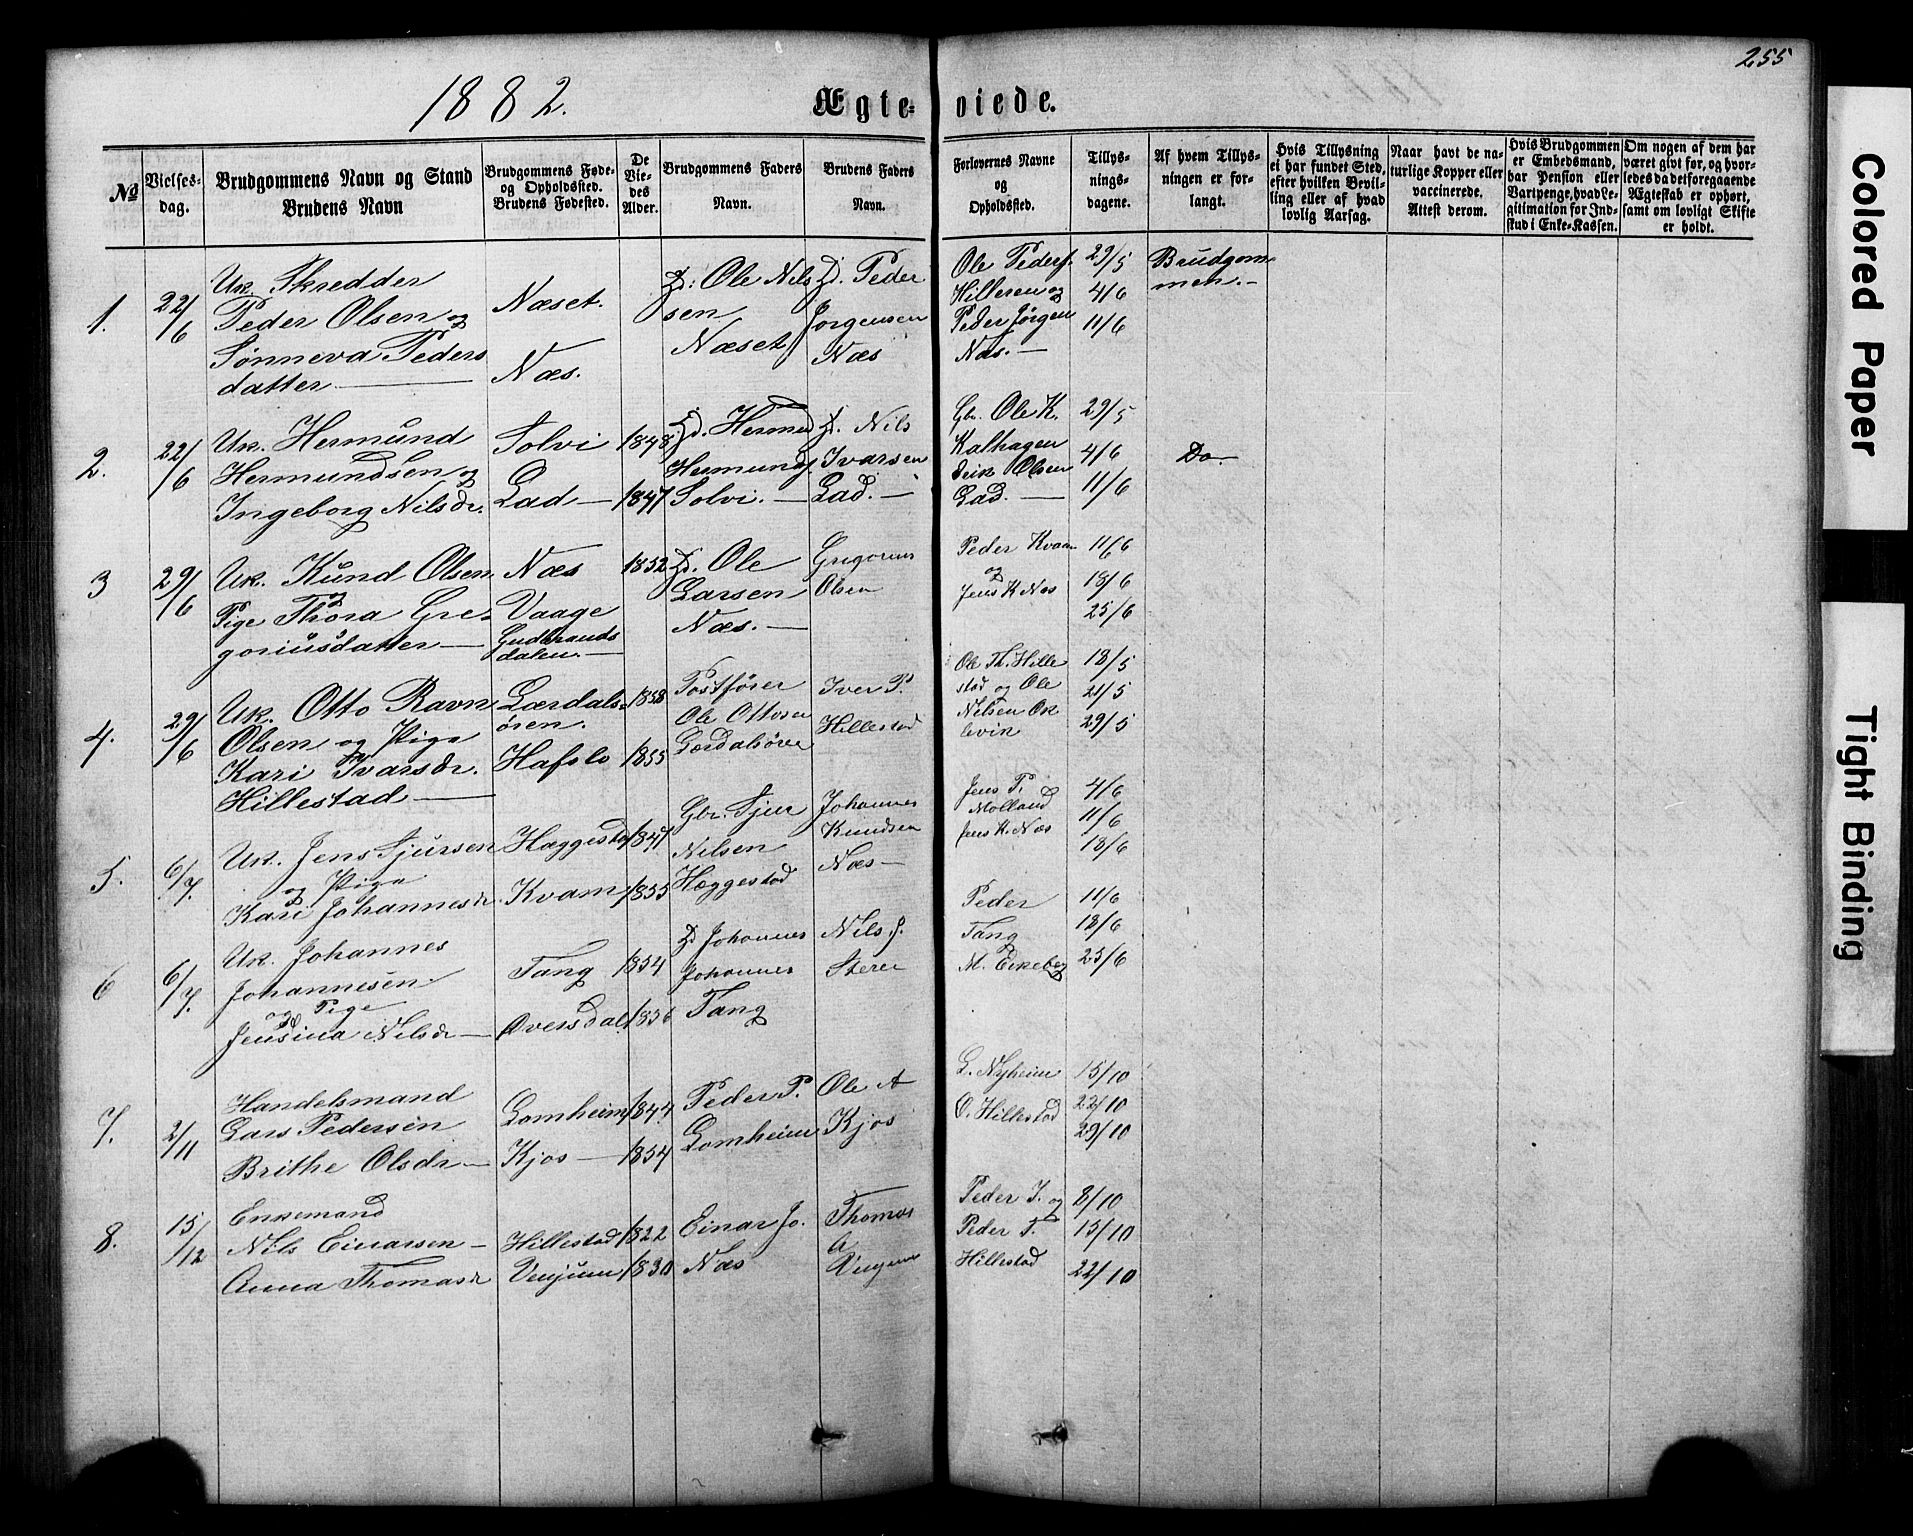 255
1882. Ægte- viede.
№
Vielses-
dag.
Brudgommens Navn og Stand
Brudens Navn
Brudgommens Føde-
og Opholdsted.
Brudens Fødested.
De
Vie-
des
Alder.
Brudgommens Faders
Navn.
Brudens Faders
Navn.
Forlovernes Navne
og
Opholdsted.
Tillys-
nings-
dagene.
Af hvem Tillys-
ningen er for-
langt.
Hvis Tillysning
ei har fundet Sted,
efter hvilken Bevil-
ling eller af hvad
lovlig Aarsag.
Naar havt de na-
turlige Kopper eller
vaccinerede.
Attest derom.
Hvis Brudgommen
er Embedsmand,
har Pension eller
Vartpenge, hvad Le-
gitimation for Ind-
skud i Enke-Kassen.
Om nogen af dem har
været givt før, og hvor-
ledes da det foregaaende
Ægteskab er ophørt,
samt om lovligt Skifte
er holdt.
1.
22/6
Uk. Skredder
Peder Olsen og
Sønneva Peders
datter
Næset.
Næs.
Gd: Ole Nils
sen
Næset
Gd. Peder
Jørgensen
Næs
Ole Peders.
Hilleren og
Peder Jørgen
Næs.
29/5
4/6
11/6
Brudgom-
men.
2.
22/6
Uk. Hermund
Hermundsen og
Ingeborg Nilsdr.
Solvi
Lad
1848
1847
Gd. Hermund
Hermunds.
Solvi.
Gd. Nils
Ivarsen
Lad.
Gbr. Ole K.
Kalhagen
Erik Olsen
Lad.
29/5
4/6
11/6
Do.
3
29/6
Uk. Knud Olsen
og
Pige Thora Gre-
goriusdatter
Næs
Vaage
Gudbrands
dalen.
1852
Gd. Ole
Larsen
Næs.
Grigorius
Olsen
Peder Kvam
og
Jens K. Næs
11/6
18/6
25/6
4.
29/6
Uk. Otto Ravn
Olsen og Pige
Kari Ivarsdr.
Hillestad
Lærdals-
øren.
Hafslo
1858
1855
Postfører
Ole Ottosen
Lærdalsøren
Iver P.
Hillestad
Ole Th. Hille
stad og Ole
Nilsen Ok
levik
18/5
21/5
29/5
5.
6/7.
Uk. Jens Sjursen
og Pige
Kari Johannesdr.
Hæggestad
Kvam
1847
1855
Gbr. Sjur
Nilsen
Hæggestad
Johannes
Knudsen
Næs
Jens P.
Molland
Jens K. Næs
4/6
11/6
18/6
6
6/7.
Uk. Johannes
Johannesen
og Pige
Jensina Nilsdr
Tang
Øversdal
1854
1856
Gd Johannes
Johannes
Tang
Nils J.
Peder
Tang
11/6
18/6
25/6
7.
2/11
Handelsmand
Lars Pedersen
Brithe Olsdr
Lomheim
Kjos
1844
1854
Peder P.
Lomheim
Ole A
Kjos
L. Nyheim
O. Hillestad
15/10
22/10
29/10
8.
15/12
Enkemand
Nils Einarsen
Anna Thomasdr
Hillestad
Venjum
1822
1830
Einar Jo.
Næs
Thomas
A
Peder I. og
Peder T.
Hillestad
8/10
15/10
22/10
Colored Paper
Tight Binding